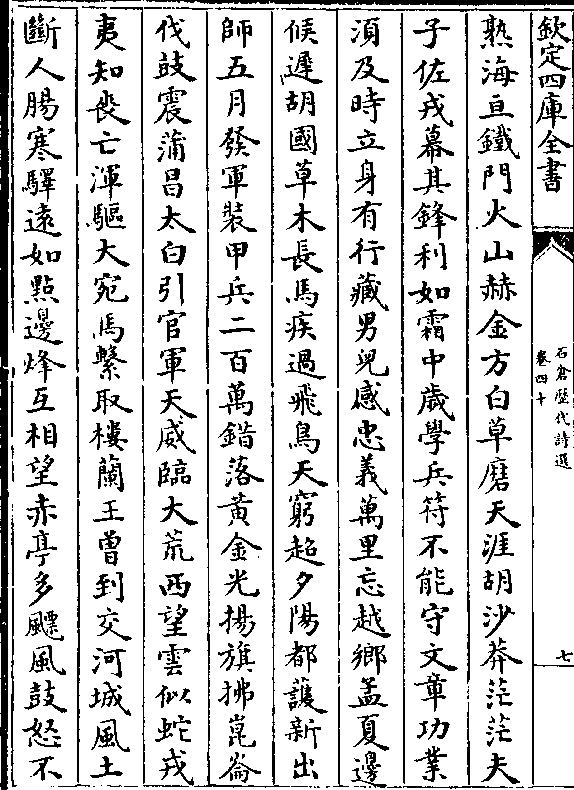 欽定四庫全書
石倉歷代詩選
卷四十
七
熱海亘鐵門火山赫金方白草磨天涯胡沙莽茫茫夫
子佐戎幕其鋒利如霜中歲學兵符不能守文章功業
須及時立身有行藏男兒感忠義萬里忘越鄉孟夏邊
候遲胡國草木長馬疾過飛鳥天窮超夕陽都護新出
師五月發軍裝甲兵二百萬錯落黄金光揚旗拂崑崙
伐鼓震蒲昌太白引官軍天威臨大荒西望雲似蛇戎
夷知喪亡渾驅大宛馬繫取樓蘭王曾到交河城風土
斷人腸寒驛遠如點邊烽互相望赤亭多飄風鼓怒不